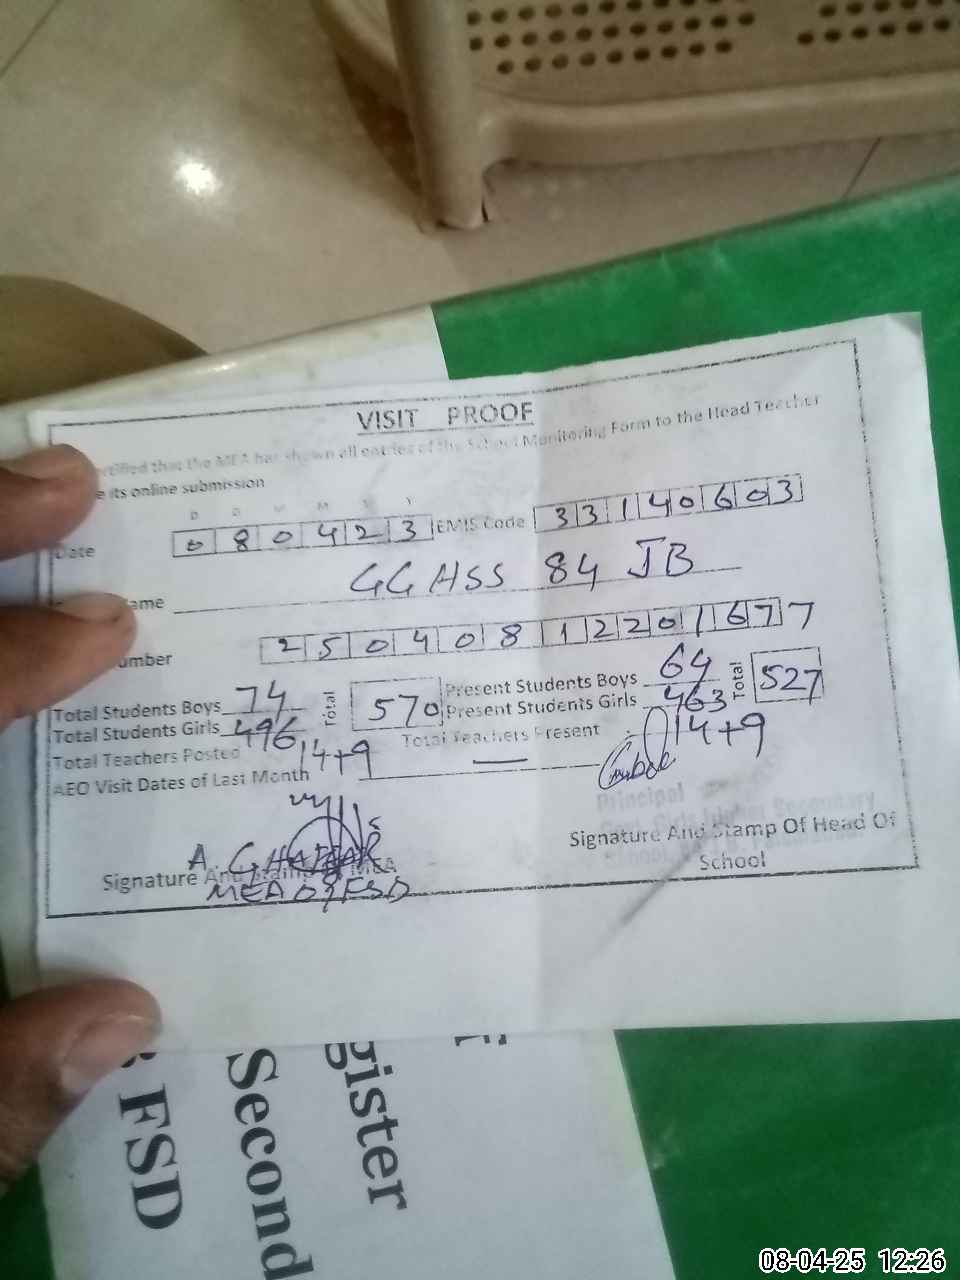 VISIT PROOF
ertified that the MEA has shown all entries of the School Monitoring Form to the Head Teacher
e its online submission
D D M M Y Y
Date 0 8 0 4 2 3 EMIS Code 3 3 1 4 0 6 0 3
ame GGHSS 84 JB
umber 2 5 0 4 0 8 1 2 2 0 1 6 7 7
Total Students Boys 74 Total 570 Present Students Boys 64 Total 527
Total Students Girls 496 Present Students Girls 463
Total Teachers Posted 14+9 Total Teachers Present 14+9
AEO Visit Dates of Last Month —
Principal
Signature And Stamp Of Head Of
School
A. GHAFAR
Signature And Stamp MEA
MEA 09 FSD
gister
Second
FSD
08-04-25 12:26